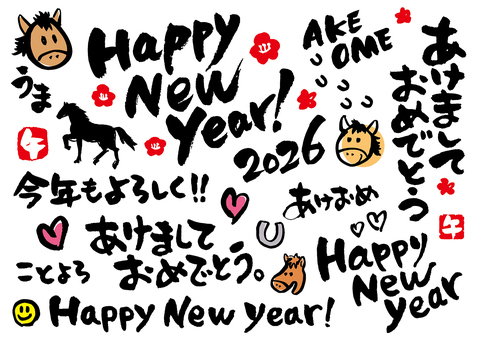 Happy
New
Year!
AKE
OME
あけまして
おめでとう
うま
午
2026
今年もよろしく!!
あけおめ
午
あけまして
おめでとう。
ことよろ
Happy
New
Year
Happy New Year!